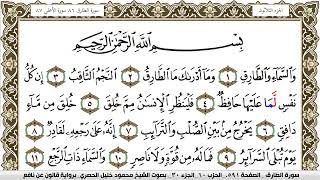 الجزء الثلاثون سورة الطارق ٨٦ سورة الأعلى ٨٧
بِسْمِ اللَّهِ الرَّحْمَٰنِ الرَّحِيمِ
وَالسَّمَآءِ وَالطَّارِقِ ١ وَمَآ أَدْرَىٰكَ مَا الطَّارِقُ ٢ النَّجْمُ الثَّاقِبُ ٣ إِن كُلُّ
نَفْسٍ لَمَا عَلَيْهَا حَافِظٌ ٤ فَلْيَنظُرِ الْإِنسَٰنُ مِمَّ خُلِقَ ٥ خُلِقَ مِن مَّآءٍ
دَافِقٍ ٦ يَخْرُجُ مِنۢ بَيْنِ الصُّلْبِ وَالتَّرَآئِبِ ٧ إِنَّهُ عَلَىٰ رَجْعِهِ لَقَادِرٌ ٨
يَوْمَ تُبْلَى السَّرَآئِرُ ٩ فَمَا لَهُ مِن قُوَّةٍ وَلَا نَاصِرٍ ١٠ وَالسَّمَآءِ ذَاتِ الرَّجْعِ ١١
سورة الطارق الصفحة ٥٩١ الحزب ٦٠ الجزء ٣٠ بصوت الشيخ محمود خليل الحصري برواية قالون عن نافع